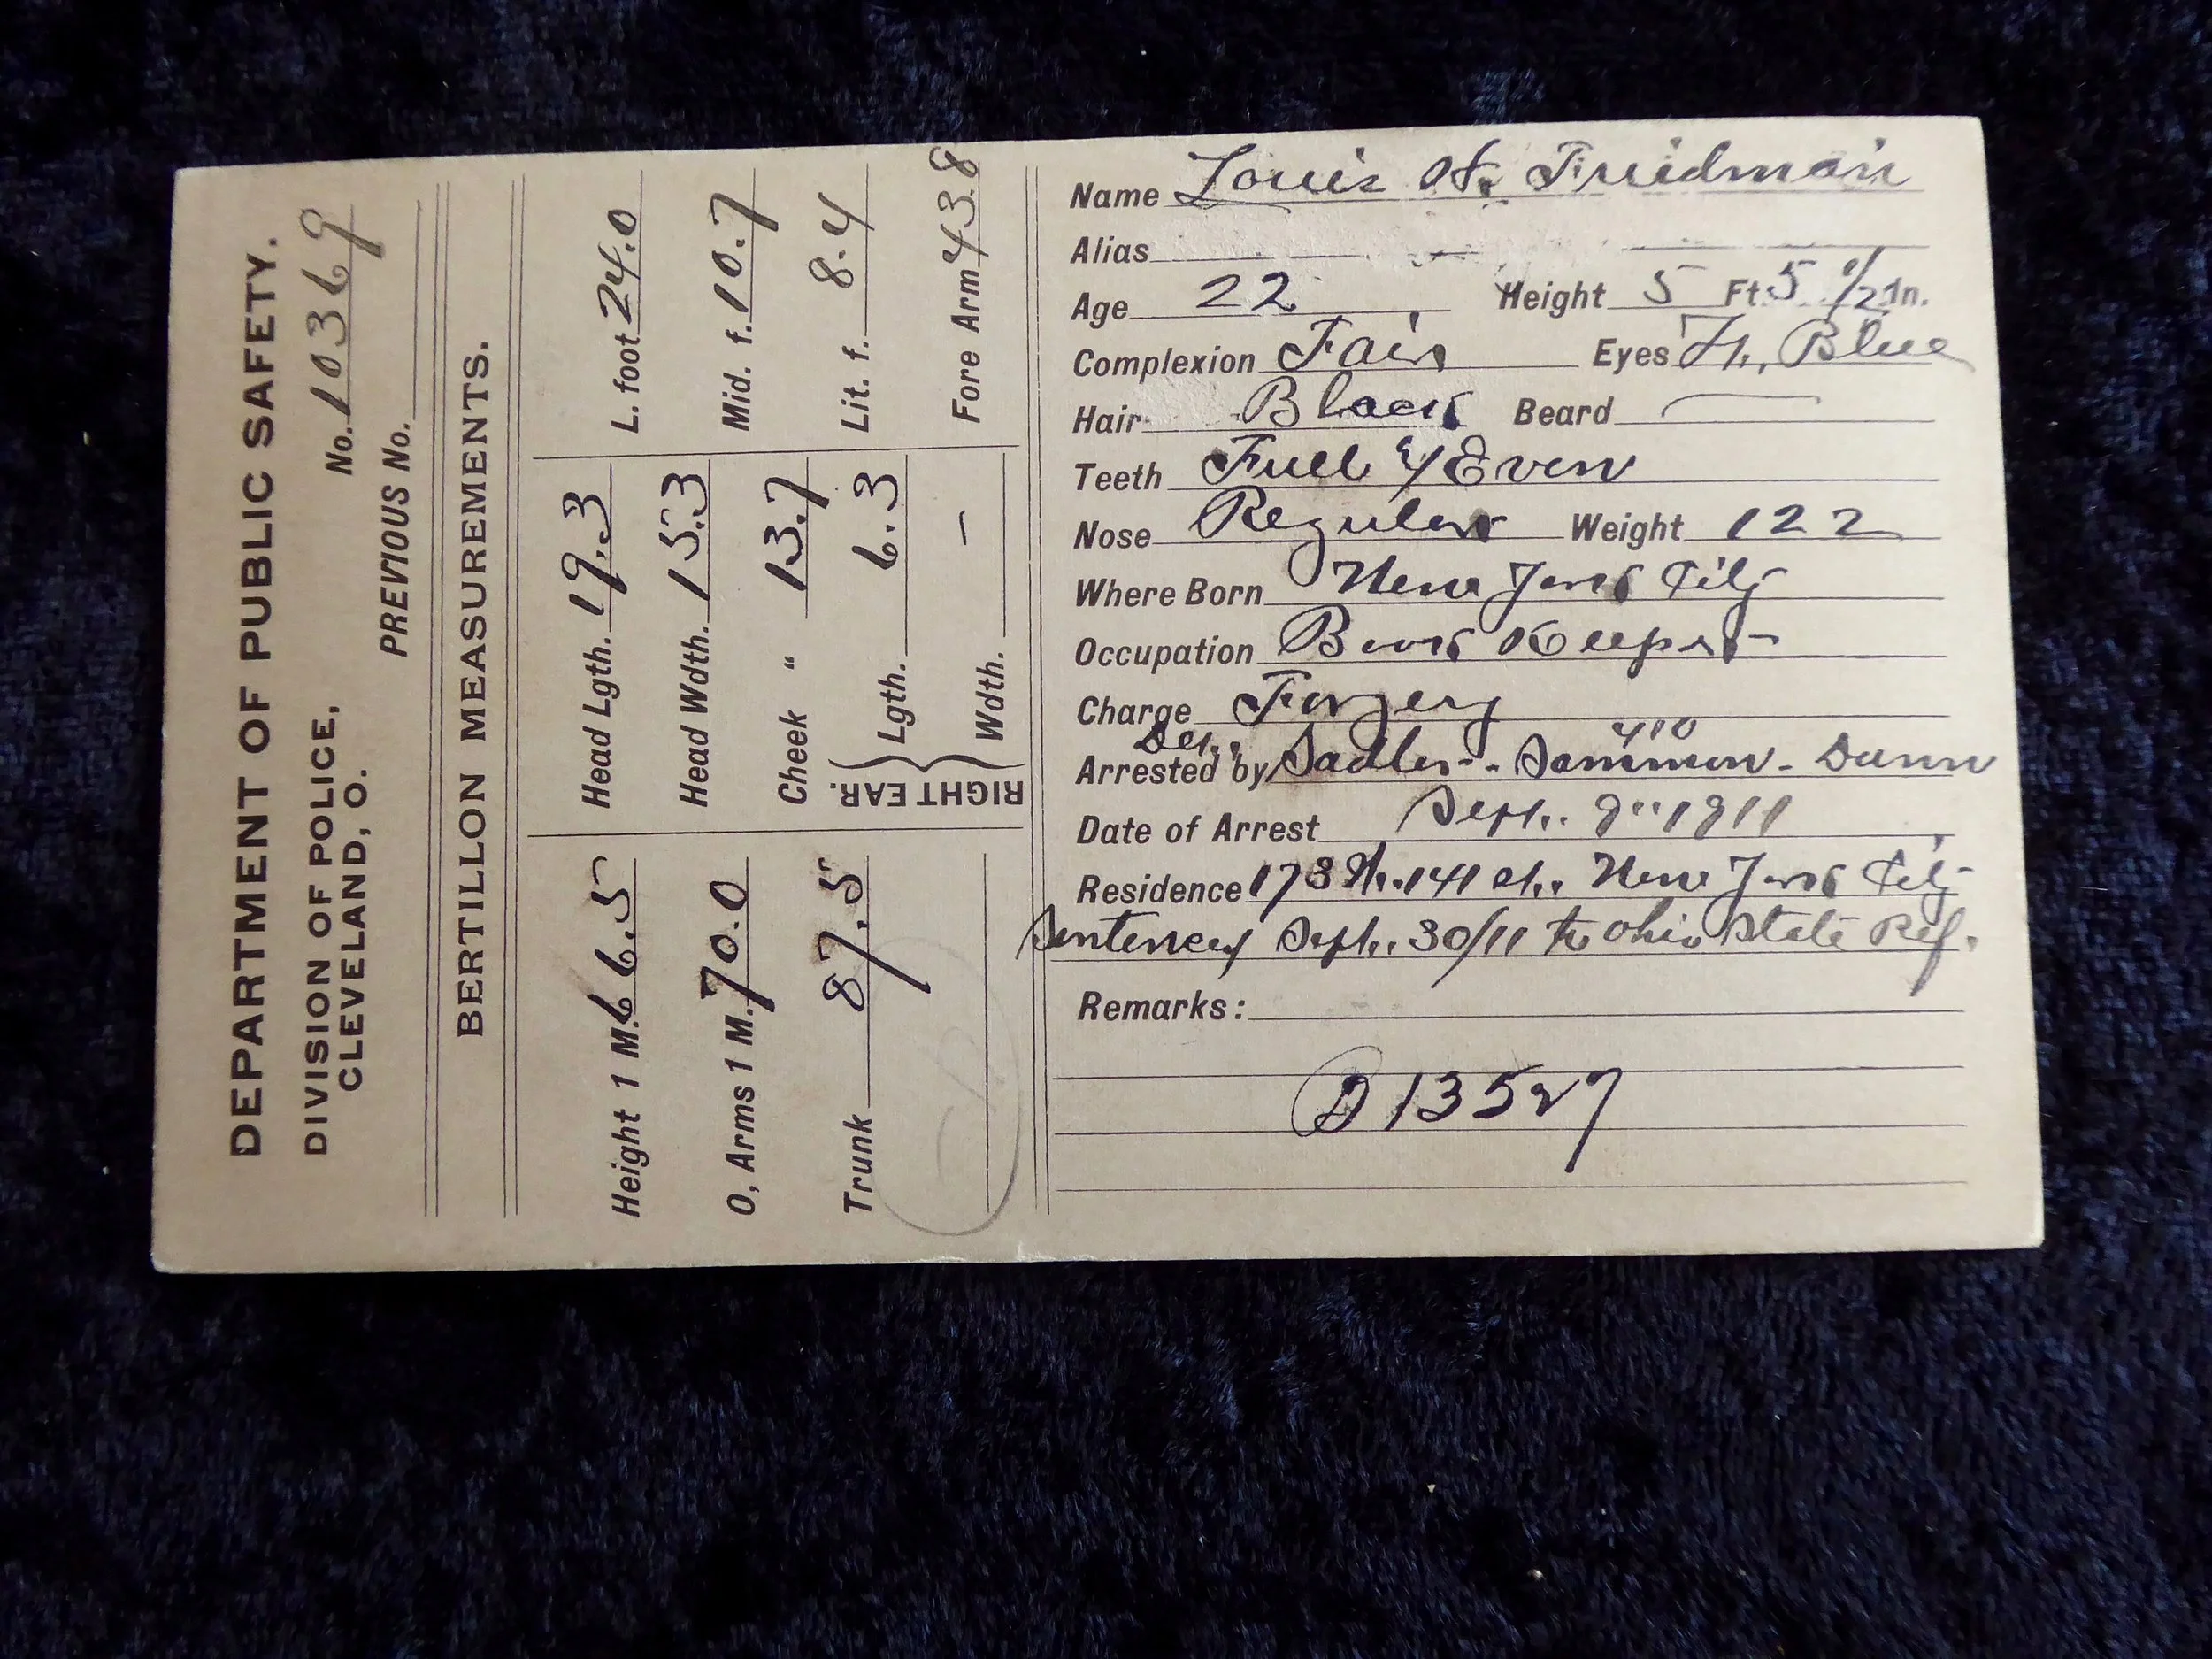 DEPARTMENT OF PUBLIC SAFETY.
DIVISION OF POLICE,
CLEVELAND, O.
No. 10369
PREVIOUS No.
BERTILLON MEASUREMENTS.
Height 1 M. 66.5
O, Arms 1 M. 70.0
Trunk 87.5
Head Lgth. 19.3
Head Wdth. 15.3
Cheek " 13.7
RIGHT EAR.
Lgth. 6.3
Wdth. —
L. foot 24.0
Mid. f. 10.7
Lit. f. 8.4
Fore Arm 43.8
Name Louis H. Friedman
Alias
Age 22 Height 5 Ft. 5 1/2 In.
Complexion Fair Eyes Lt, Blue
Hair Black Beard —
Teeth Full & Even
Nose Regular Weight 122
Where Born New York City
Occupation Book Keeper
Charge Forgery
Det.
Arrested by Sadler - Sammon - Dunn
Date of Arrest Sept. 9" 1911
Residence 173 W. 141 st. New York City
Sentenced Sept. 30/11 to Ohio State Ref.
Remarks:
D 13527